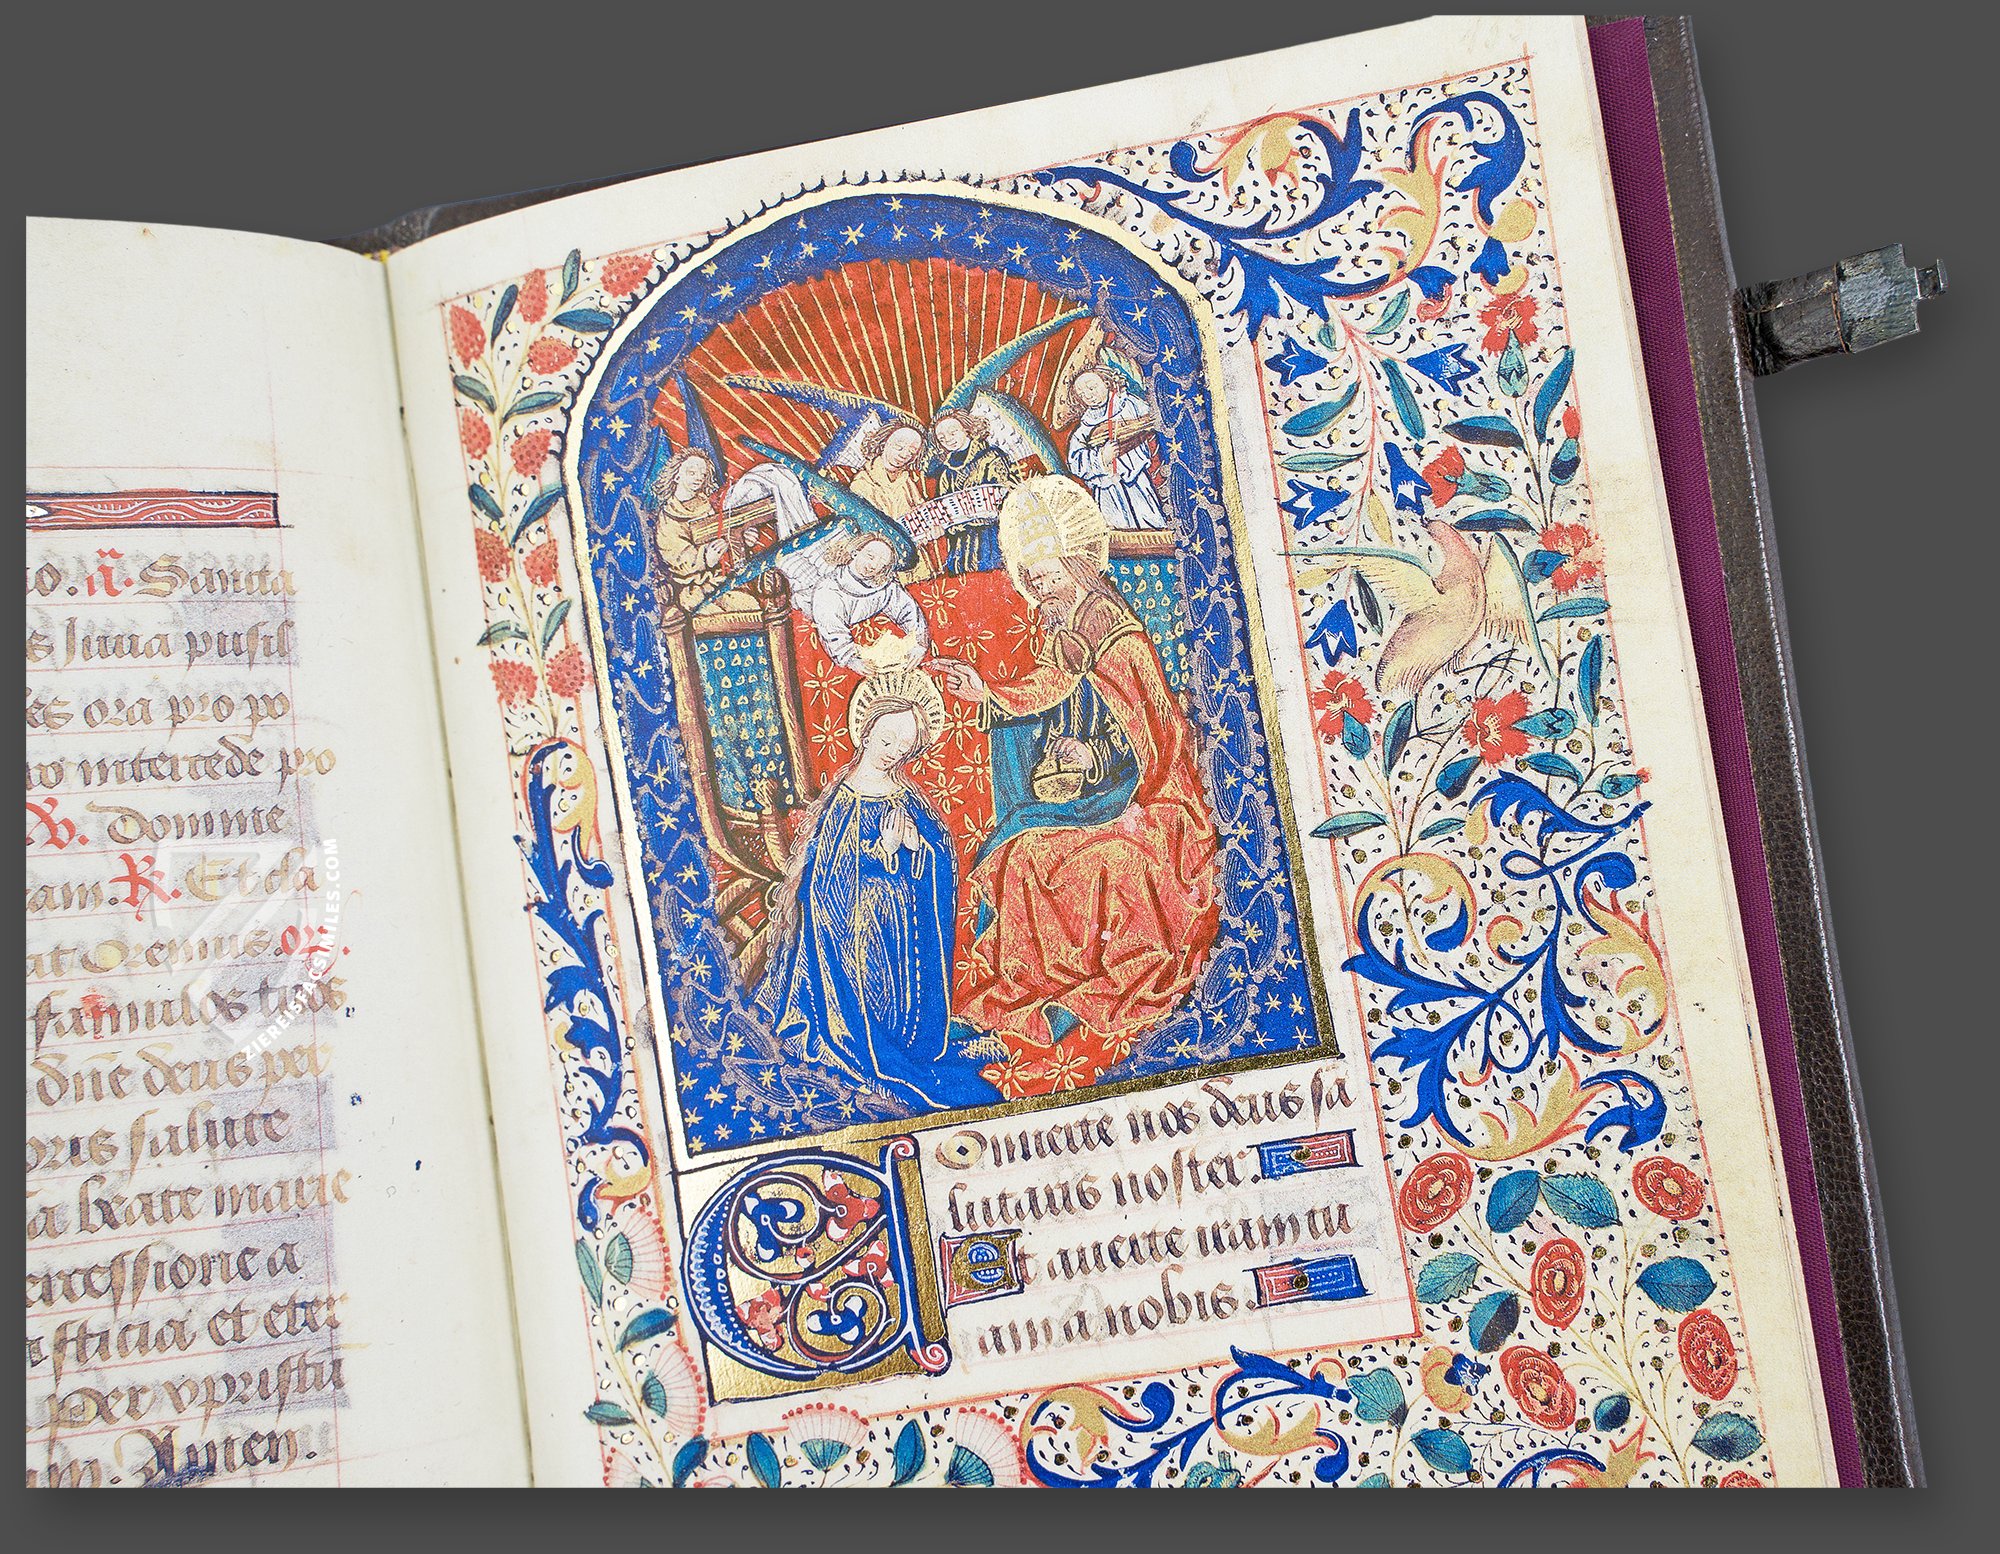 o. ã. Sancta
s Iuua pusil
es ora pro po
ro intercede pro
℣. Domine
am. ℟. Et cla
at Oremus. or.
famulos tuos
dñe deus per
oris salute
a beate marie
ercessione a
sticia et eter
Per xpristu
m. Amen.
Conuerte nos deus sa
lutaris noster.
Et auerte iram tu
am a nobis.
ZIEREISFACSIMILES.COM